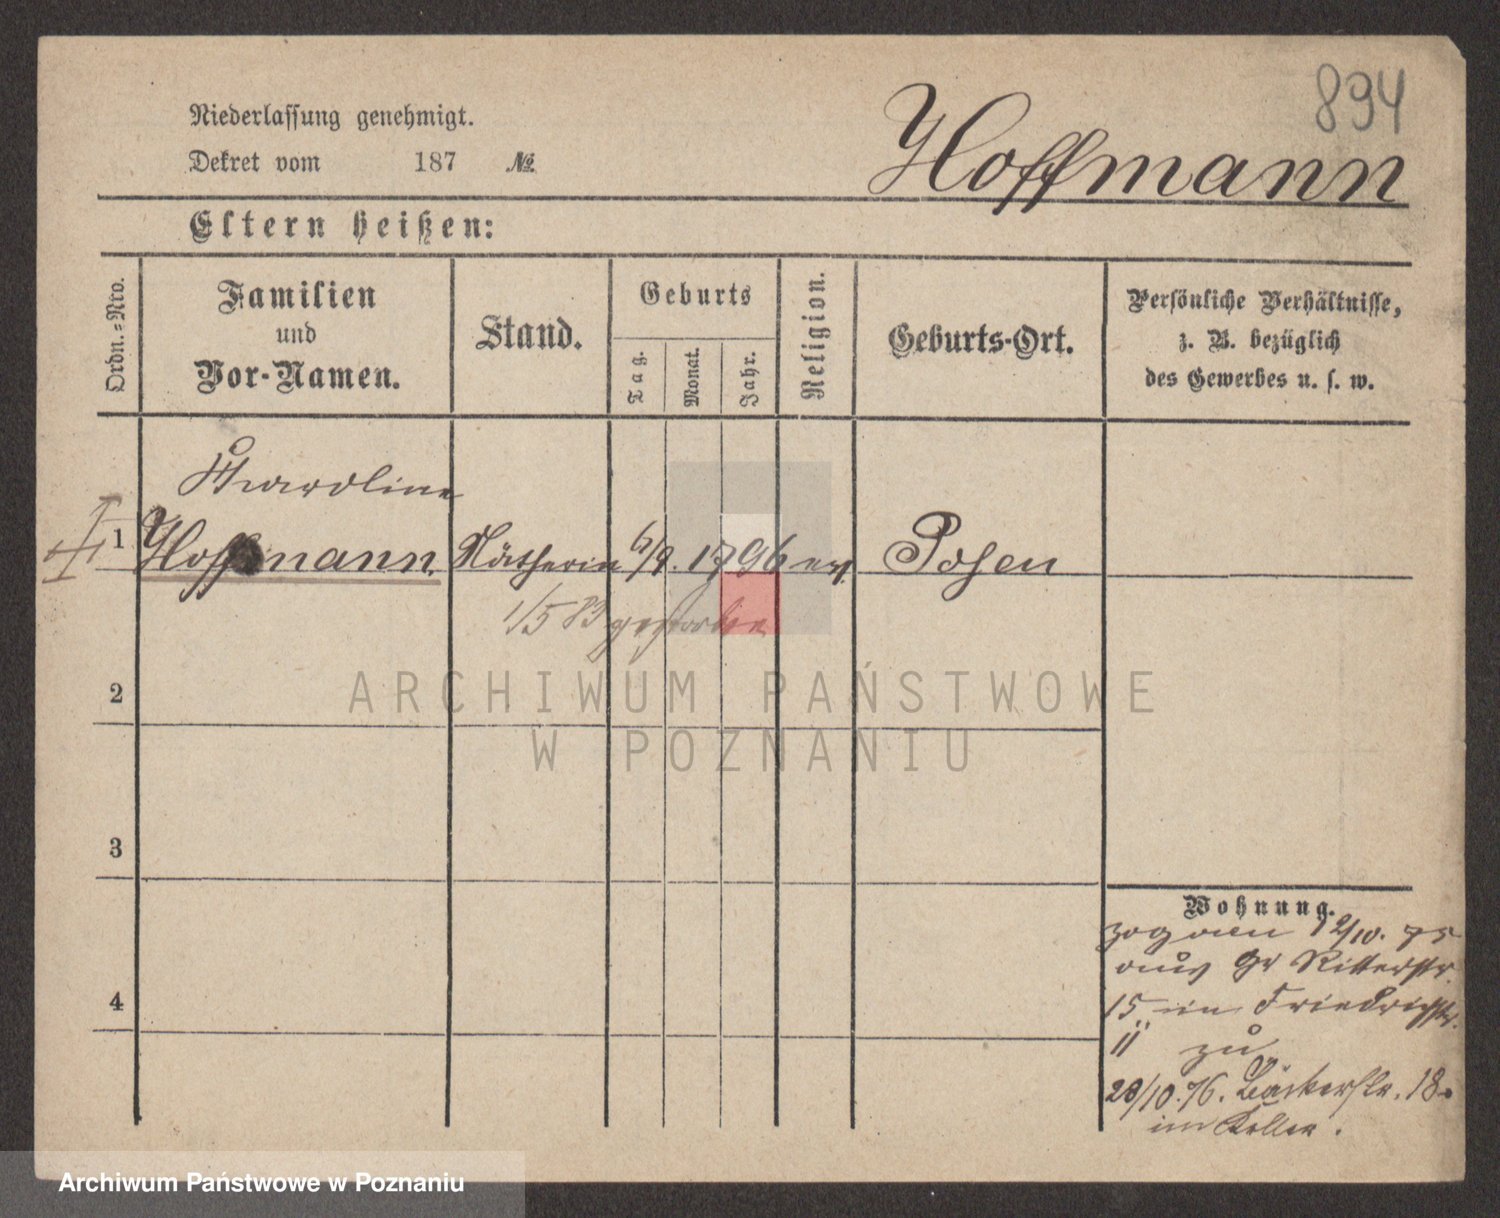 894
Niederlassung genehmigt.
Hoffmann
Dekret vom 187 №
Eltern heißen:
Ordn.-Nro.
Familien
und
Vor-Namen.
Stand.
Geburts
Tag.
Monat.
Jahr.
Religion.
Geburts-Ort.
Persönliche Verhältnisse,
z. B. bezüglich
des Gewerbes u. s. w.
1 Hoffmann. Nätherin 6/9. 1796 ev. Posen
1/5 83 gestorben
2
ARCHIWUM PAŃSTWOWE
W POZNANIU
3
4
Wohnung.
zog am 12/10. 75
aus Gr Ritterstr.
15 in Friedrichstr.
11 zu
28/10. 76. Bäckerstr. 18.
im Keller.
Archiwum Państwowe w Poznaniu